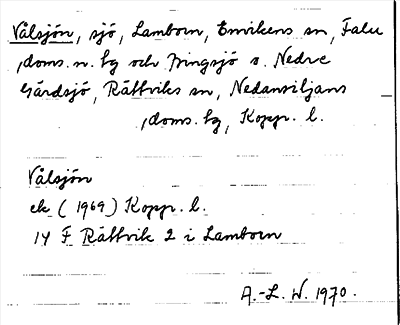 Vålsjön, sjö, Lamborn, Envikens sn, Falu
doms. n. hg och Bingsjö s. Nedre
Gärdsjö, Rättviks sn, Nedansiljans
doms. hg, Kopp. l.
Vålsjön
ek (1969) Kopp. l.
14 F Rättvik 2 i Lamborn
A.-L. W. 1970.